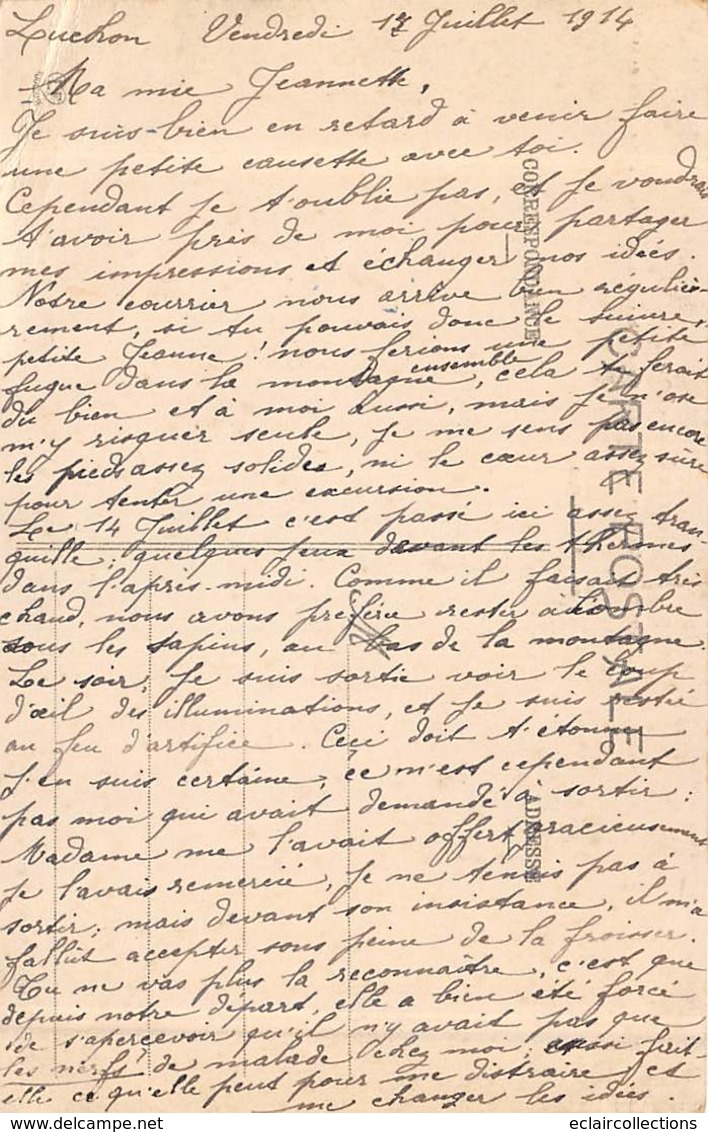 Luchon Vendredi 17 Juillet 1914
Ma mie Jeannette,
Je suis bien en retard à venir faire
une petite causette avec toi.
Cependant je t'oublie pas, et je voudrais
t'avoir près de moi pour partager
mes impressions et échanger nos idées.
Notre courrier nous arrive bien réguliè-
rement, si tu pouvais donc le suivre,
petite Jeanne! nous ferions une petite
fugue dans la montagne ensemble, cela te ferait
du bien et à moi aussi, mais je n'ose
m'y risquer seule, je me sens pas encore
les pieds assez solides, ni le cœur assez sûre
pour tenter une excursion.
Le 14 Juillet c'est passé ici assez tran-
quille; quelques jeux devant les thermes
dans l'après-midi. Comme il faisait très
chaud, nous avons préféré rester à l'ombre
sous les sapins, au bas de la montagne.
Le soir, je suis sortie voir le coup
d'œil des illuminations, et je suis restée
au feu d'artifice. Ceci doit t'étonner
j'en suis certaine, ce n'est cependant
pas moi qui avait demandé à sortir:
Madame me l'avait offert gracieusement
je l'avais remercié, je ne tenais pas à
sortir; mais devant son insistance, il m'a
fallut accepter sous peine de la froisser.
Tu ne vas plus la reconnaître, c'est que
depuis notre départ, elle a bien été forcé
de s'apercevoir qu'il n'y avait pas que
les nerfs de malade chez moi; aussi fait-
elle ce qu'elle peut pour me distraire et
me changer les idées.
CARTE POSTALE
CORRESPONDANCE
ADRESSE
eclaircollections